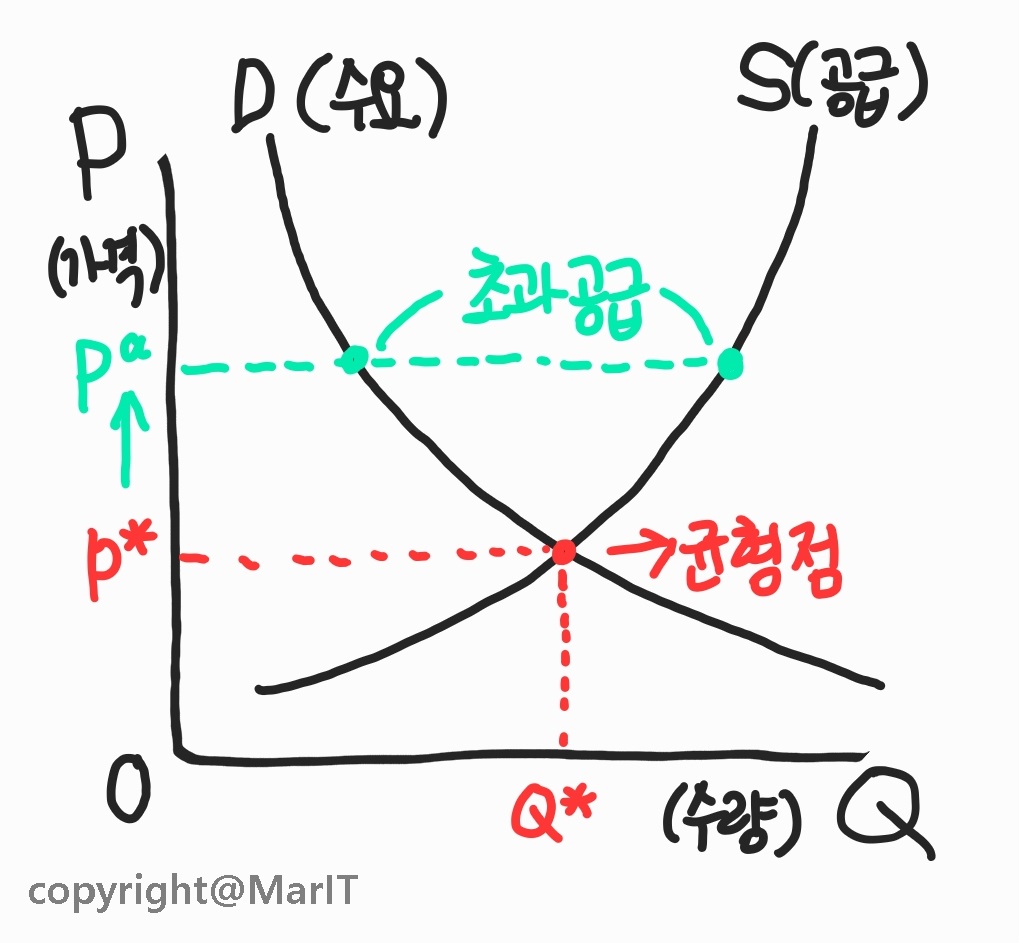 D (수요)
S(공급)
P
(가격)
초과공급
pα
p*
균형점
0
Q*
(수량)
Q
copyright@MarIT